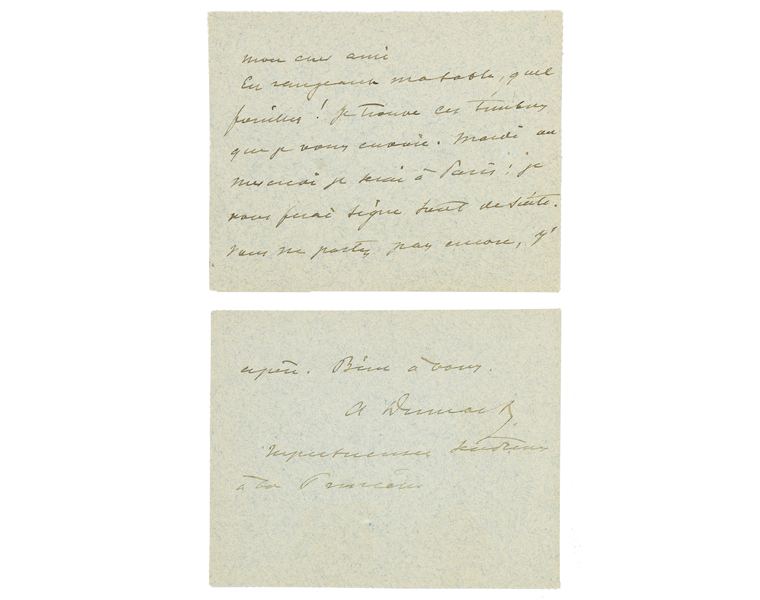 mon cher ami
En rangeant ma table, quel
fouillis! je trouve ces timbres
que je vous envoie. Mardi ou
mercredi je serai à Paris; je
vous ferai signe tout de suite.
Vous ne partez pas encore, j'
espère. Bien à vous.
A
respectueuses
à la Princesse